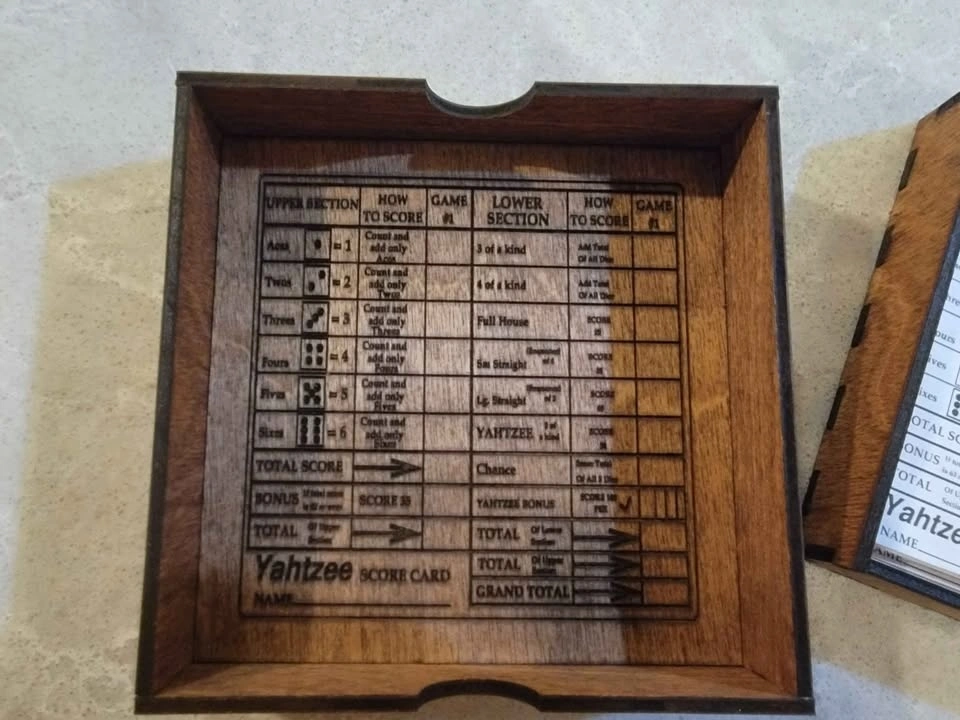 UPPER SECTION HOW TO SCORE GAME #1 LOWER SECTION HOW TO SCORE GAME #1
Aces = 1 Count and add only Aces 3 of a kind Add Total Of All Dice
Twos = 2 Count and add only Twos 4 of a kind Add Total Of All Dice
Threes = 3 Count and add only Threes Full House SCORE
Fours = 4 Count and add only Fours Sm Straight SCORE
Fives = 5 Count and add only Fives Lg. Straight SCORE
Sixes = 6 Count and add only Sixes YAHTZEE 5 of a kind SCORE
TOTAL SCORE Chance Score Total Of All 5 Dice
BONUS If total score is 63 or over SCORE 35 YAHTZEE BONUS SCORE 100 PER
TOTAL Of Upper Section TOTAL Of Lower Section
Yahtzee SCORE CARD TOTAL Of Upper Section
NAME GRAND TOTAL
BONUS
TOTAL
Yahtze
NAME